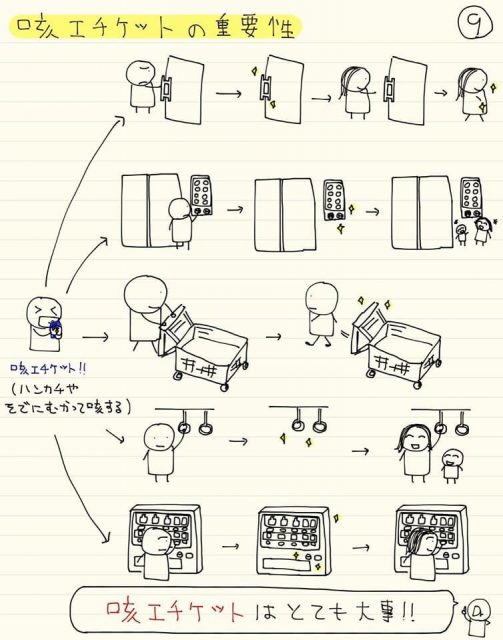 咳エチケットの重要性
⑨
咳エチケット!!
(ハンカチや
そでにむかって咳する)
咳エチケットはとても大事!!